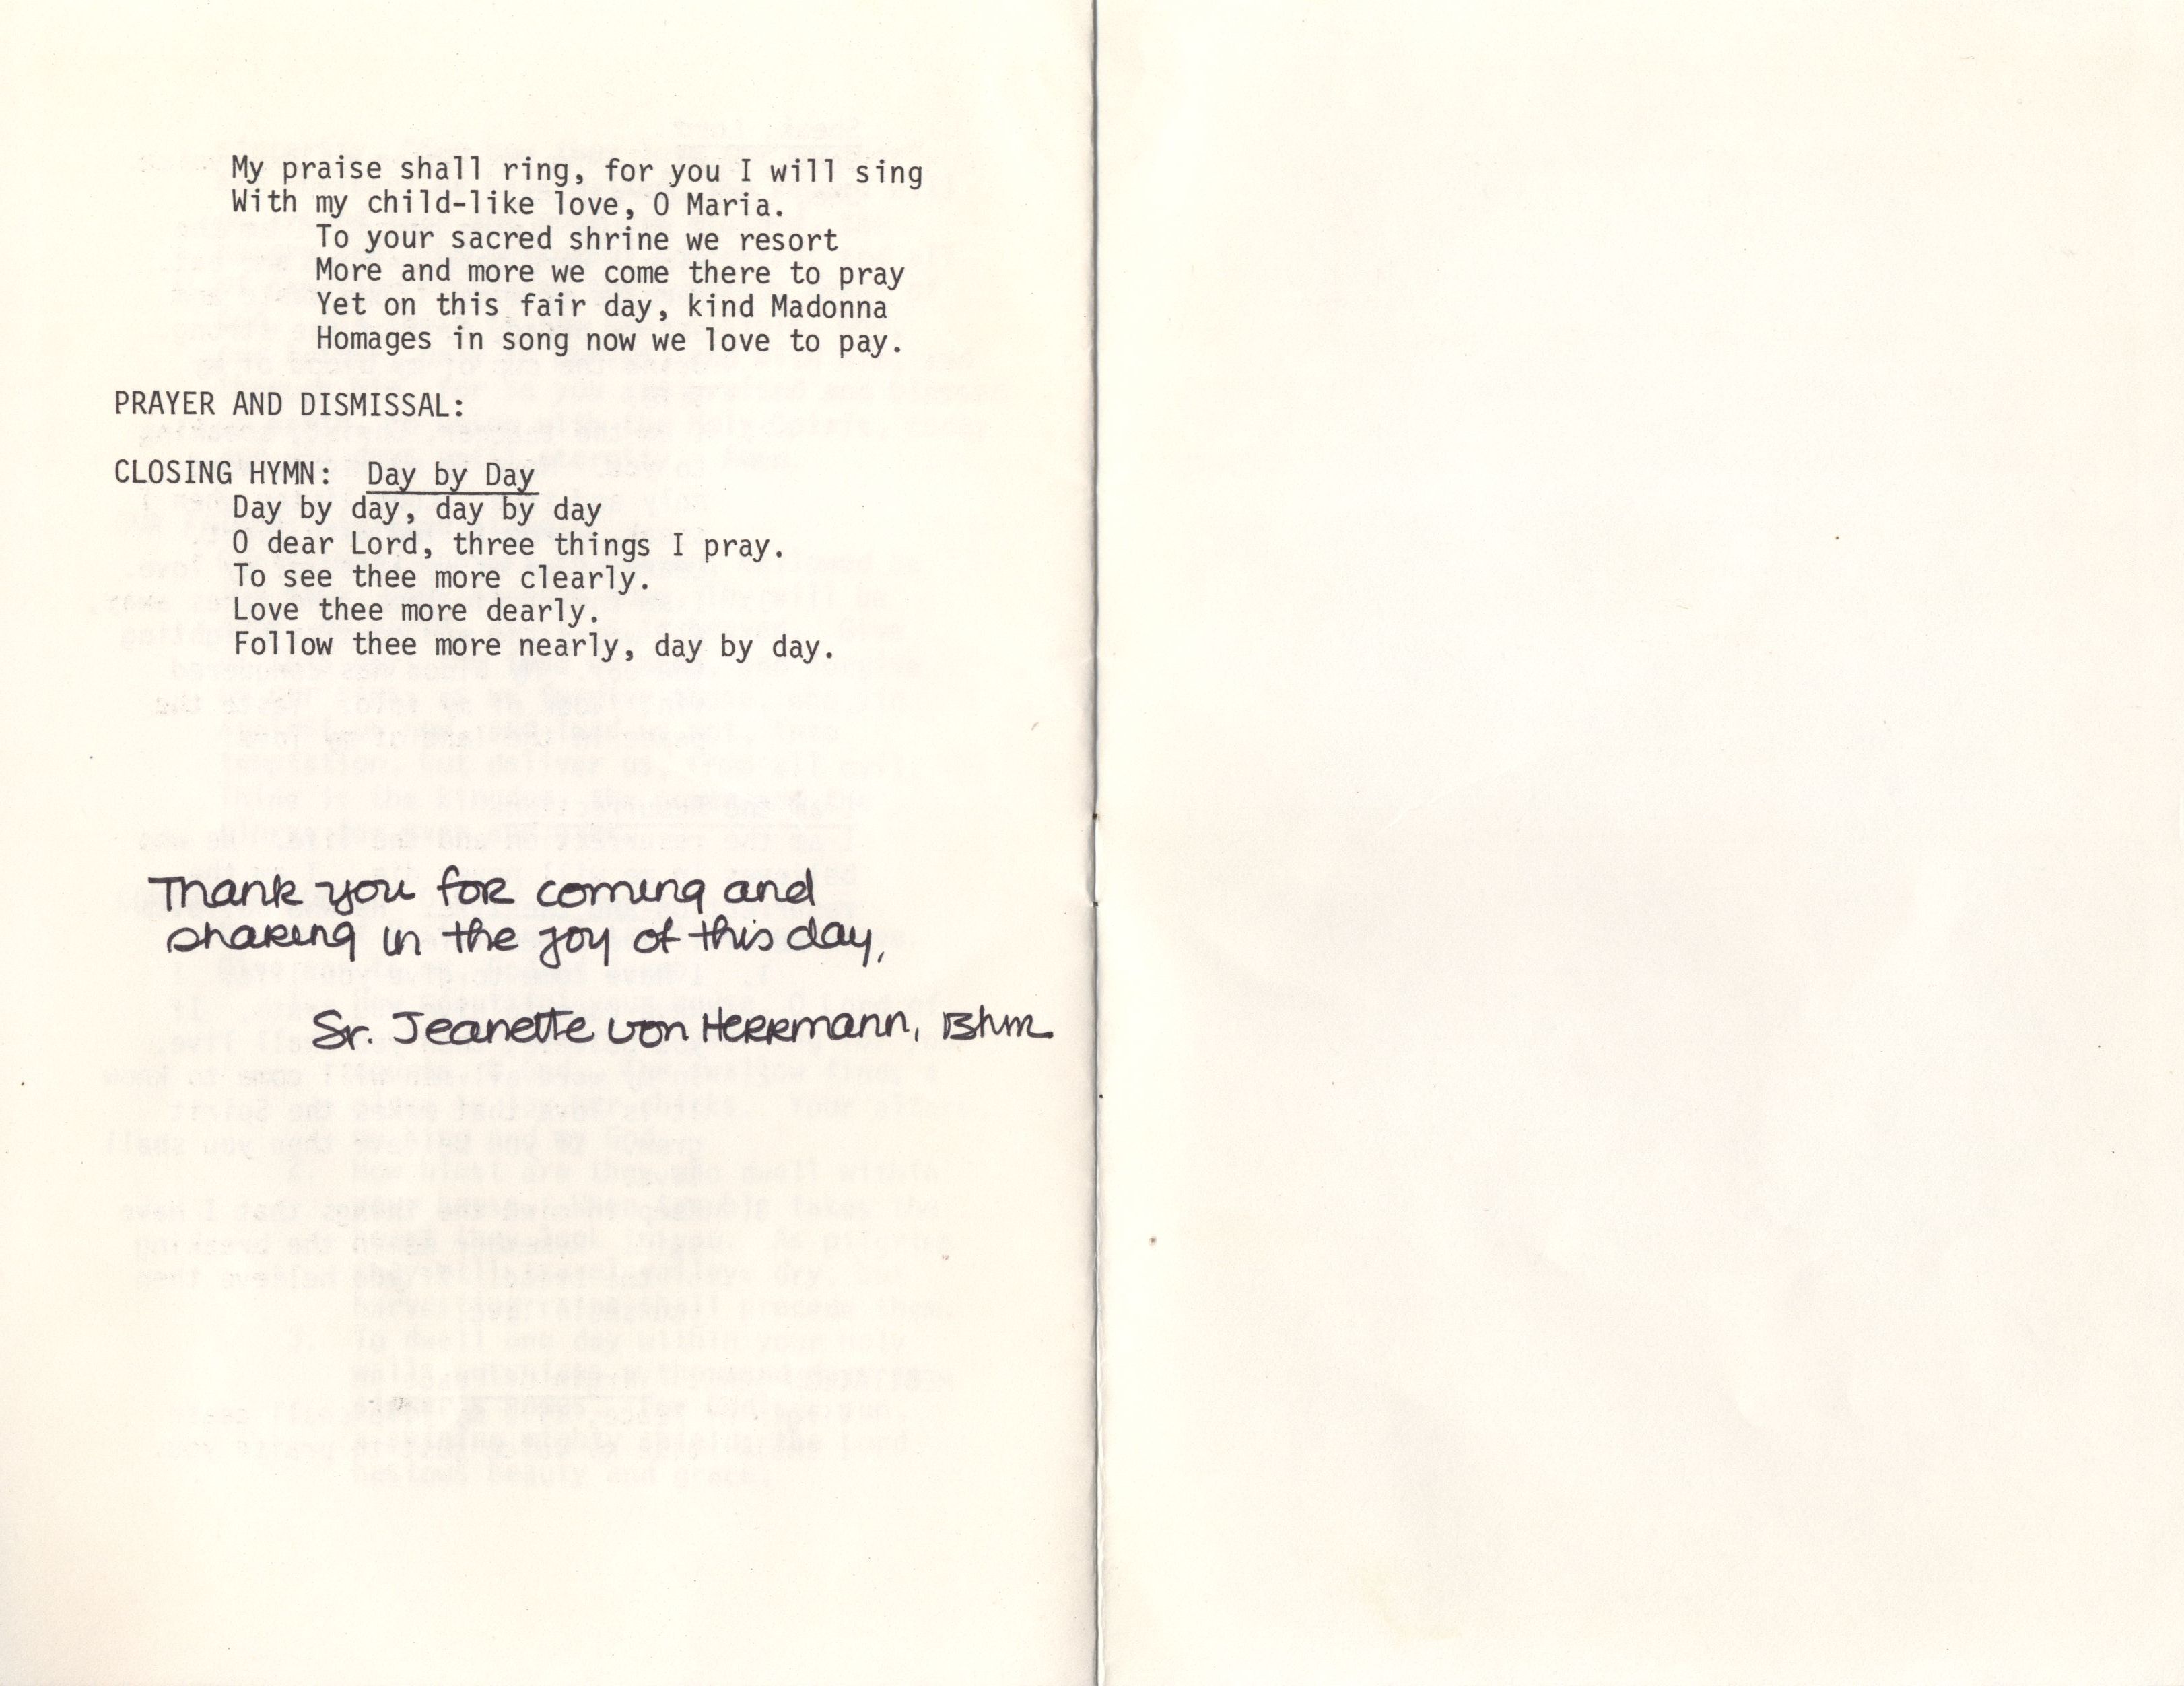 My praise shall ring, for you I will sing
With my child-like love, O Maria.
To your sacred shrine we resort
More and more we come there to pray
Yet on this fair day, kind Madonna
Homages in song now we love to pay.
PRAYER AND DISMISSAL:
CLOSING HYMN: Day by Day
Day by day, day by day
O dear Lord, three things I pray.
To see thee more clearly.
Love thee more dearly.
Follow thee more nearly, day by day.
Thank you for coming and
sharing in the joy of this day,
Sr. Jeanette von Herrmann, Bhm